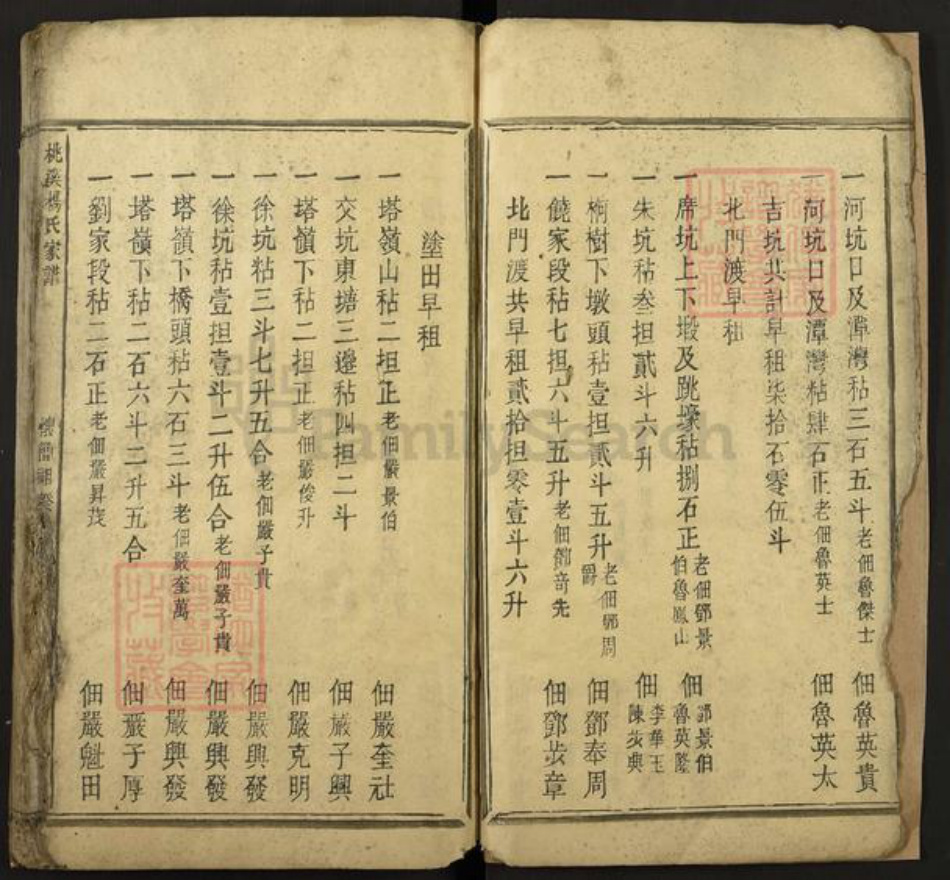 一河坑口及潭灣秥三石五斗老佃魯傑士 佃魯英貴
一河坑口及潭灣秥肆石正老佃魯英士 佃魯英太
吉坑共計早租柒拾石零伍斗
北門渡早租
一席坑上下塅及跳壕秥捌石正老佃鄧景伯魯鳳山 佃鄧景伯魯英隆
一朱坑秥叁担貳斗六升 佃李華玉陳步典
一桐樹下墩頭秥壹担貳斗五升老佃鄧周爵 佃鄧奉周
一饒家段秥七担六斗五升老佃鄧奇先 佃鄧步章
北門渡共早租貳拾担零壹斗六升
塗田早租
一塔嶺山秥二担正老佃嚴景伯 佃嚴奎社
一交坑東塘三邊秥四担二斗 佃嚴子興
一塔嶺下秥二担正老佃嚴俊升 佃嚴克明
一徐坑秥三斗七升五合老佃嚴子貴 佃嚴興發
一徐坑秥壹担壹斗二升伍合老佃嚴子貴 佃嚴興發
一塔嶺下橋頭秥六石三斗老佃嚴奎萬 佃嚴興發
一塔嶺下秥二石六斗二升五合 佃嚴于厚
一劉家段秥二石正老佃嚴昇茂 佃嚴魁田
桃溪楊氏家譜
FamilySearch